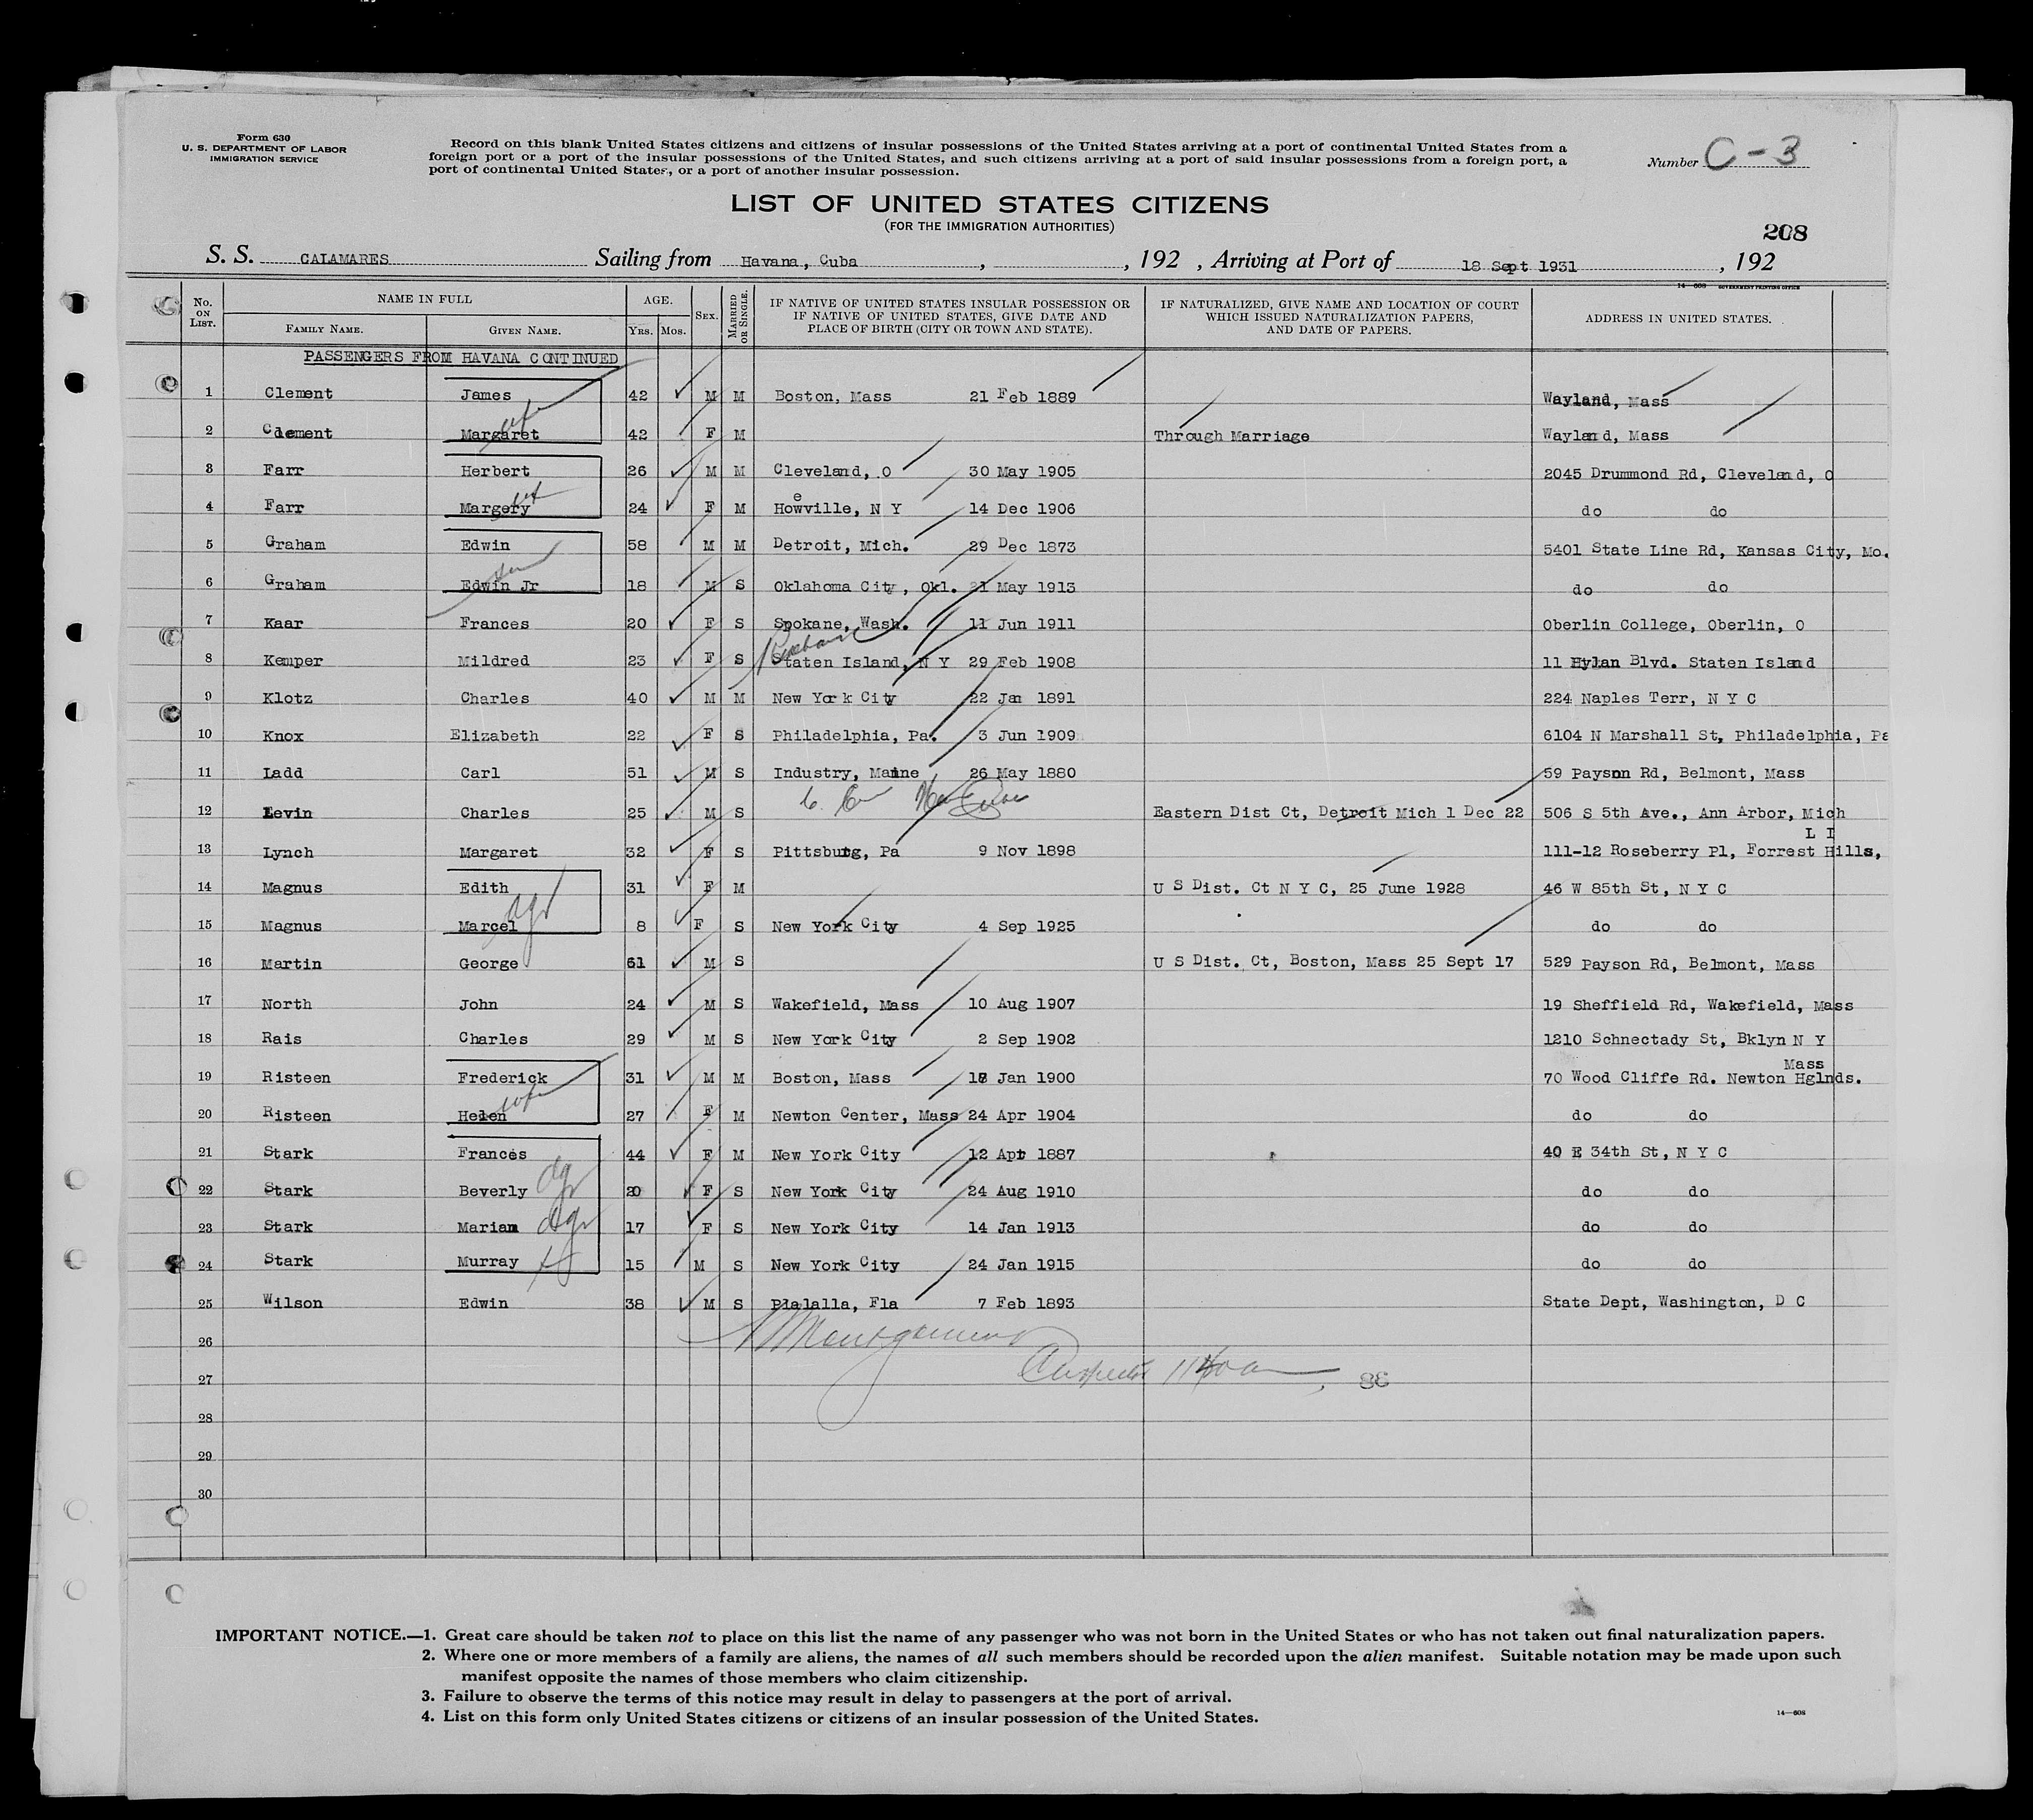 Form 630
U. S. DEPARTMENT OF LABOR
IMMIGRATION SERVICE
Record on this blank United States citizens and citizens of insular possessions of the United States arriving at a port of continental United States from a
foreign port or a port of the insular possessions of the United States, and such citizens arriving at a port of said insular possessions from a foreign port, a
port of continental United States, or a port of another insular possession.
Number C-3
LIST OF UNITED STATES CITIZENS
(FOR THE IMMIGRATION AUTHORITIES)
208
S. S. CALAMARES Sailing from Havana, Cuba , , 192 , Arriving at Port of 18 Sept 1931 , 192
14—608 GOVERNMENT PRINTING OFFICE
No. ON LIST. NAME IN FULL FAMILY NAME. GIVEN NAME. AGE. YRS. MOS. SEX. MARRIED OR SINGLE. IF NATIVE OF UNITED STATES INSULAR POSSESSION OR IF NATIVE OF UNITED STATES, GIVE DATE AND PLACE OF BIRTH (CITY OR TOWN AND STATE). IF NATURALIZED, GIVE NAME AND LOCATION OF COURT WHICH ISSUED NATURALIZATION PAPERS, AND DATE OF PAPERS. ADDRESS IN UNITED STATES.
PASSENGERS FROM HAVANA CONTINUED
1 Clement James 42 M M Boston, Mass 21 Feb 1889 Wayland, Mass
2 Clement Margaret wife 42 F M Through Marriage Wayland, Mass
3 Farr Herbert 26 M M Cleveland, O 30 May 1905 2045 Drummond Rd, Cleveland, O
4 Farr Margery 24 F M Howeville, N Y 14 Dec 1906 do do
5 Graham Edwin 58 M M Detroit, Mich. 29 Dec 1873 5401 State Line Rd, Kansas City, Mo.
6 Graham Edwin Jr 18 M S Oklahoma City, Okl. 21 May 1913 do do
7 Kaar Frances 20 F S Spokane, Wash. 11 Jun 1911 Oberlin College, Oberlin, O
8 Kemper Mildred 23 F S Staten Island, N Y 29 Feb 1908 11 Hylan Blvd. Staten Island
9 Klotz Charles 40 M M New York City 22 Jan 1891 224 Naples Terr, N Y C
10 Knox Elizabeth 22 F S Philadelphia, Pa. 3 Jun 1909 6104 N Marshall St, Philadelphia, Pa
11 Ladd Carl 51 M S Industry, Maine 26 May 1880 59 Payson Rd, Belmont, Mass
12 Levin Charles 25 M S Eastern Dist Ct, Detroit Mich 1 Dec 22 506 S 5th Ave., Ann Arbor, Mich
L I
13 Lynch Margaret 32 F S Pittsburg, Pa 9 Nov 1898 111-12 Roseberry Pl, Forrest Hills,
14 Magnus Edith 31 F M U S Dist. Ct N Y C, 25 June 1928 46 W 85th St, N Y C
15 Magnus Marcel dgr 8 F S New York City 4 Sep 1925 do do
16 Martin George 61 M S U S Dist. Ct, Boston, Mass 25 Sept 17 529 Payson Rd, Belmont, Mass
17 North John 24 M S Wakefield, Mass 10 Aug 1907 19 Sheffield Rd, Wakefield, Mass
18 Rais Charles 29 M S New York City 2 Sep 1902 1210 Schnectady St, Bklyn N Y
Mass
19 Risteen Frederick 31 M M Boston, Mass 18 Jan 1900 70 Wood Cliffe Rd. Newton Hglnds.
20 Risteen Helen wife 27 F M Newton Center, Mass 24 Apr 1904 do do
21 Stark Frances 44 F M New York City 12 Apr 1887 40 E 34th St, N Y C
22 Stark Beverly dgr 20 F S New York City 24 Aug 1910 do do
23 Stark Marian dgr 17 F S New York City 14 Jan 1913 do do
24 Stark Murray 15 M S New York City 24 Jan 1915 do do
25 Wilson Edwin 38 M S Plalalla, Fla 7 Feb 1893 State Dept, Washington, D C
26 Montgomery
27 Inspector
28
29
30
IMPORTANT NOTICE.—1. Great care should be taken not to place on this list the name of any passenger who was not born in the United States or who has not taken out final naturalization papers.
2. Where one or more members of a family are aliens, the names of all such members should be recorded upon the alien manifest. Suitable notation may be made upon such
manifest opposite the names of those members who claim citizenship.
3. Failure to observe the terms of this notice may result in delay to passengers at the port of arrival.
4. List on this form only United States citizens or citizens of an insular possession of the United States.
14—608